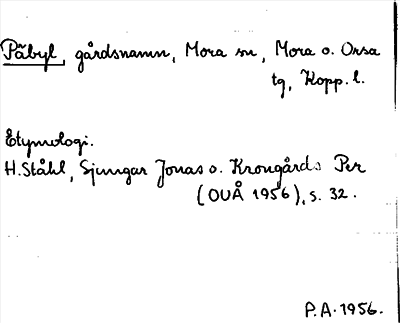 Påbyl, gårdsnamn, Mora sn, Mora o. Orsa
tg, Kopp. l.
Etymologi.
H. Ståhl, Sjungar Jonas o. Krongårds Per
(OUÅ 1956), s. 32.
P.A. 1956.